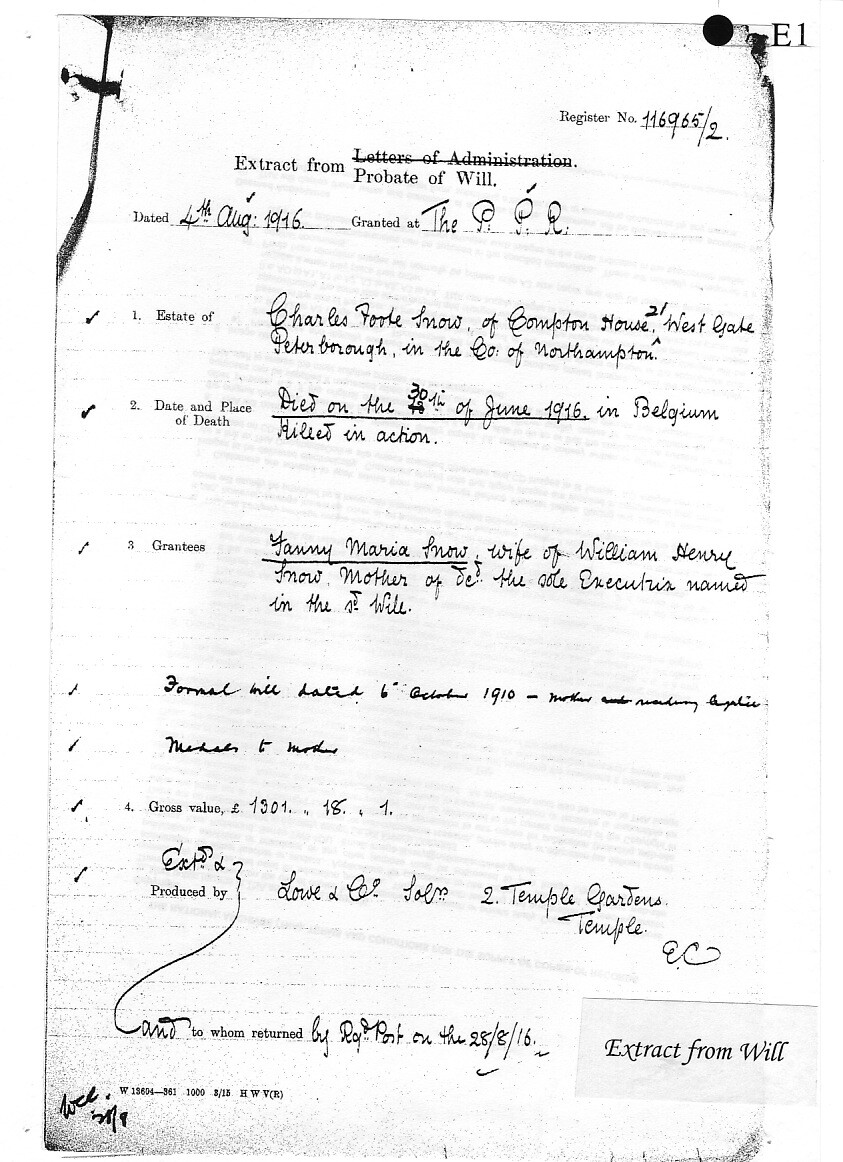 E1
Register No. 116965/2.
Extract from Letters of Administration.
Probate of Will.
Dated 4th Aug: 1916. Granted at The P. P. R.
1. Estate of Charles Foote Snow, of Compton House, 21 West Gate
Peterborough, in the Co: of Northampton.
2. Date and Place of Death Died on the 30th of June 1916. in Belgium
Killed in action.
3 Grantees Fanny Maria Snow, wife of William Henry
Snow, Mother of decd. the sole Executrix named
in the sd. Will.
Formal will dated 6 October 1910 – mother and residuary legatee
Medals to mother
4. Gross value, £ 1301. „ 18. „ 1.
Extd &
Produced by Lowe & Co. Solrs 2. Temple Gardens.
Temple.
E.C
and to whom returned by Rgd. Post on the 28/8/16.
Extract from Will
W 13604—361 1000 3/15 H W V(R)